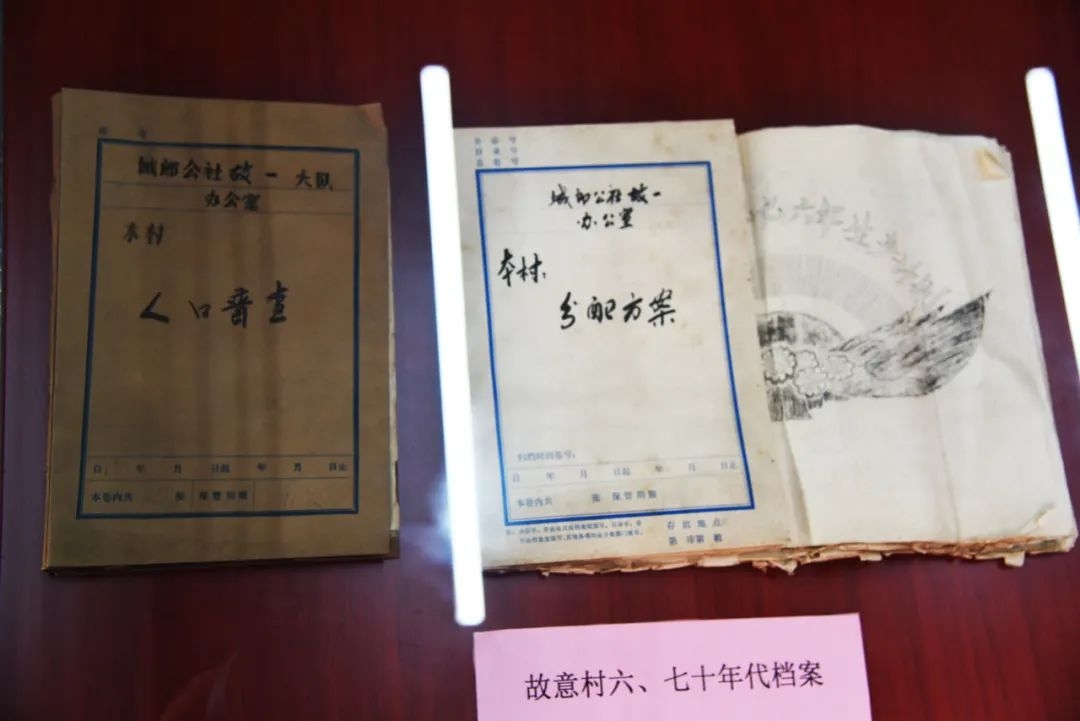 城郎公社故一大队
办公室
本村
人口普查
自 年 月 日起 年 月 日止
本卷内共 张 保管期限
城郎公社故一
办公室
本村:
分配方案
归档时间卷号:
自 年 月 日起 年 月 日止
本卷内共 张 保管期限
存放地点
故意村六、七十年代档案